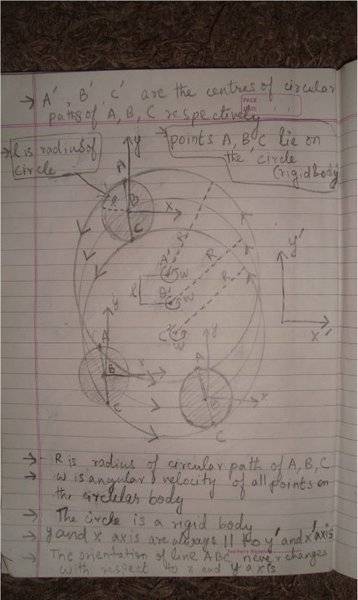 → A' B' C' are the centres of circular
paths of A, B, C respectively
PAGE
DATE
→ l is radius of
circle
→ points A, B, C lie on
the circle
(rigid body)
A
y
l
B
x
C
R
R
R
A'
w
l
B'
w
C'
w
y'
x'
A
y
B
x
C
y
A
B
x
C
→ R is radius of circular path of A, B, C
→ w is angular velocity of all points on
the circular body
→ The circle is a rigid body
→ y and x axis are always || to y' and x' axis
→ The orientation of line ABC never changes
with respect to x and y axis